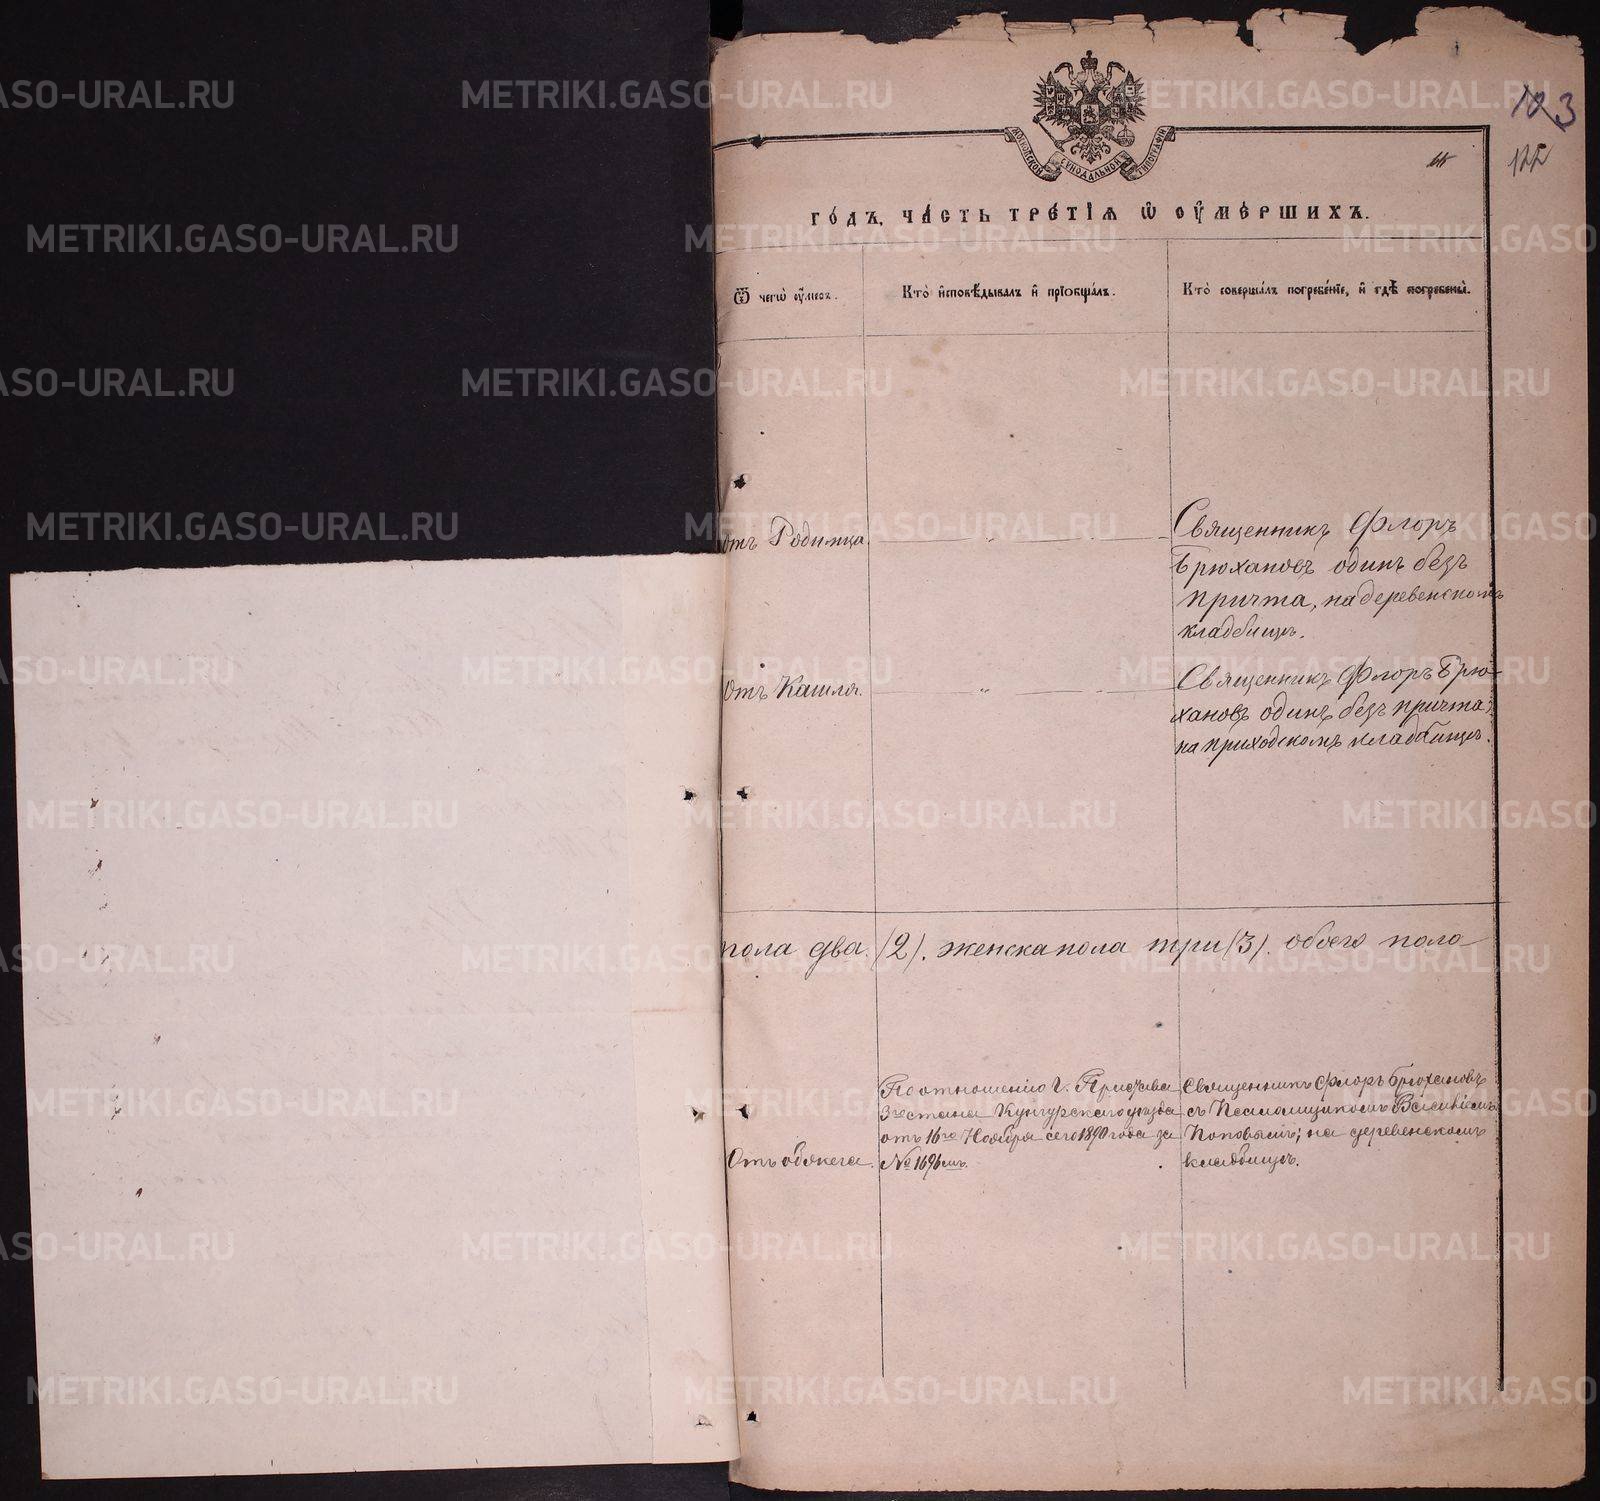 METRIKI.GASO-URAL.RU
123
122
МОСКОВСКОЙ СѴНОДАЛЬНОЙ ТИПОГРАФІИ
ГО́ДЪ, ЧА́СТЬ ТРЕ́ТІѦ Ѡ ОУМЕ́РШИХЪ.
Ѿ чегѡ̀ оу́меръ.
Кто̀ и҆сповѣ́дывалъ и҆ прїѻбща́лъ.
Кто̀ соверша́лъ погребе́нїе, и҆ гдѣ̀ погребены̀.
отъ Родимца.
Священникъ Флоръ
Брюхановъ одинъ безъ
причта, на деревенскомъ
кладбищѣ.
Отъ Кашля.
Священникъ Флоръ Брю-
хановъ одинъ безъ причта;
на приходскомъ кладбищѣ.
пола два (2). женска пола три (3). обоего пола
Отъ обжога.
По отношенію г. Пристава
3го стана Кунгурскаго уѣзда
отъ 16го Ноября сего 1890 года за
№ 1696мъ.
Священникъ Флоръ Брюхановъ
съ Псаломщикомъ Василіемъ
Поповымъ; на деревенскомъ
кладбищѣ.